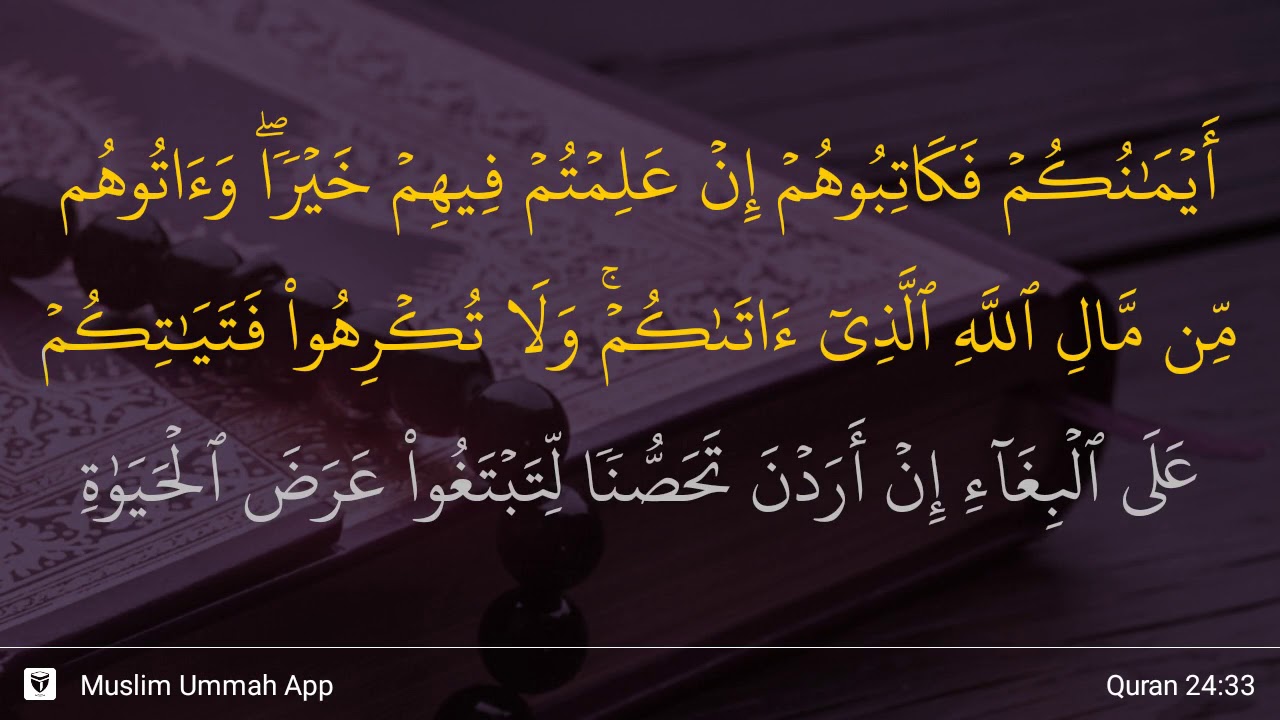 أَيۡمَٰنُكُمۡ فَكَاتِبُوهُمۡ إِنۡ عَلِمۡتُمۡ فِيهِمۡ خَيۡرٗاۖ وَءَاتُوهُم
مِّن مَّالِ ٱللَّهِ ٱلَّذِيٓ ءَاتَىٰكُمۡۚ وَلَا تُكۡرِهُواْ فَتَيَٰتِكُمۡ
عَلَى ٱلۡبِغَآءِ إِنۡ أَرَدۡنَ تَحَصُّنٗا لِّتَبۡتَغُواْ عَرَضَ ٱلۡحَيَوٰةِ
Muslim Ummah App
Quran 24:33